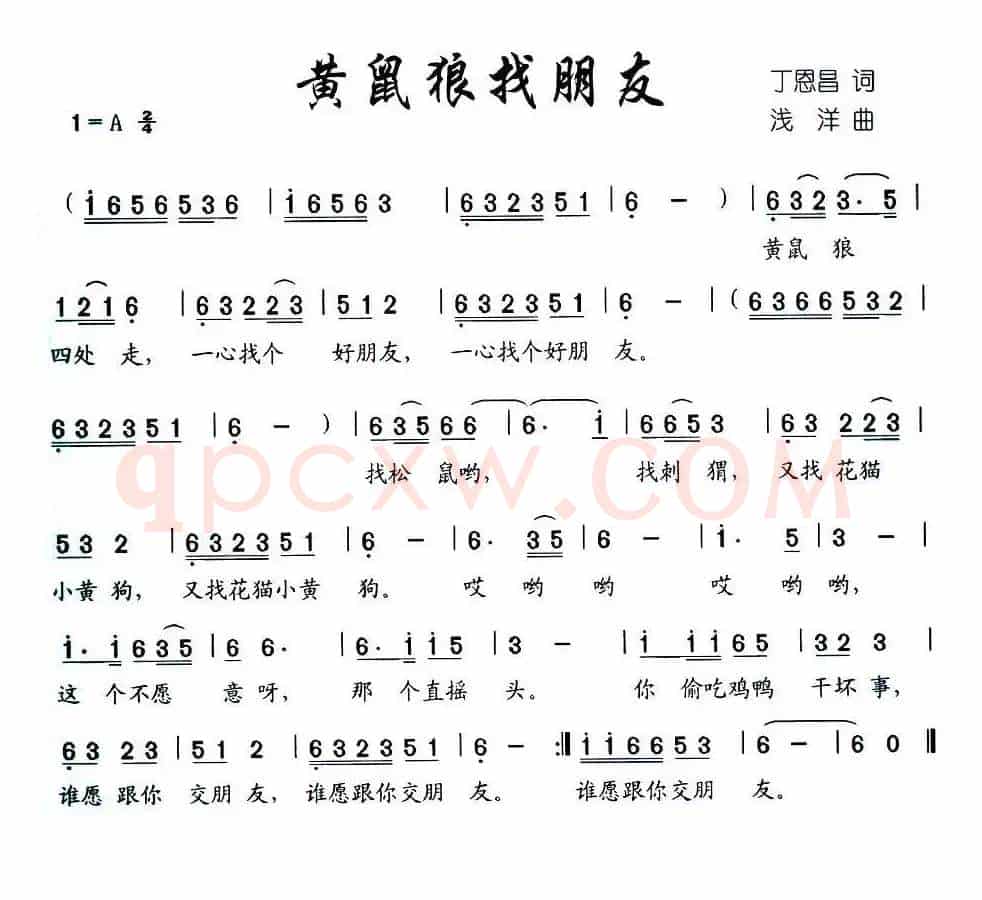 黄鼠狼找朋友
丁恩昌 词
1=A 2/4
浅 洋 曲
(i656536 | i6563 | 632351 | 6 - ) | 6323·5 |
黄鼠 狼
1216 | 63223 | 512 | 632351 | 6 - | (6366532 |
四处 走, 一心找个 好朋友, 一心找个好朋 友。
632351 | 6 - ) | 63566 | 6· i | 6653 | 63 223 |
找松 鼠哟, 找刺 猬, 又找 花猫
53 2 | 632351 | 6 - | 6· 35 | 6 - | i· 5 | 3 - |
小黄 狗, 又找花猫小黄 狗。 哎 哟 哟 哎 哟 哟,
i· i635 | 6 6· | 6· ii5 | 3 - | i ii65 | 32 3 |
这 个不愿 意呀, 那 个直摇 头。 你 偷吃鸡鸭 干坏 事,
63 23 | 51 2 | 632351 | 6 - :‖ ii6653 | 6 - | 6 0 ‖
谁愿 跟你 交朋 友, 谁愿跟你交朋 友。 谁愿跟你交朋 友。
qpcxw.COM